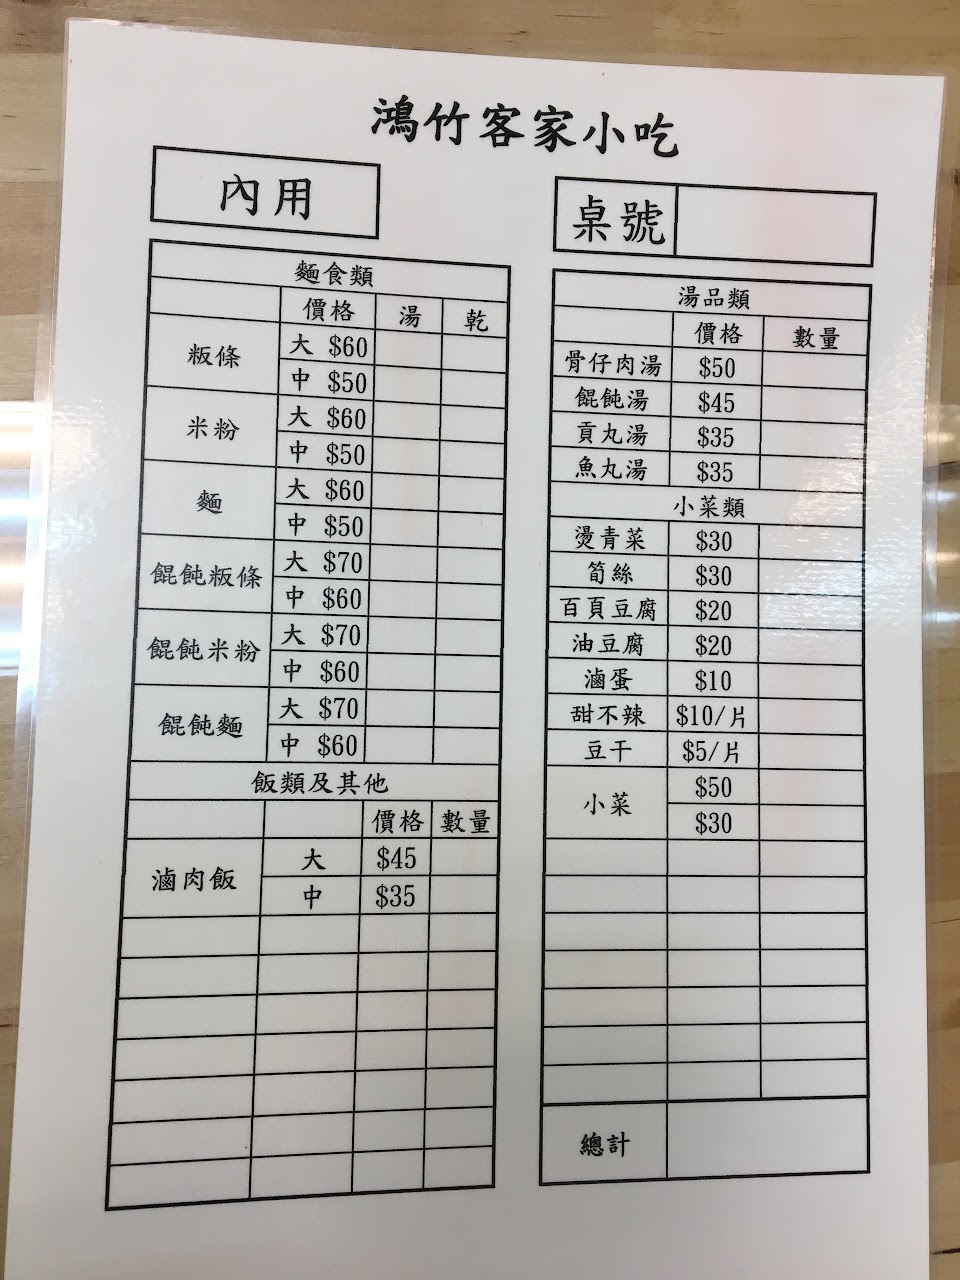 鴻竹客家小吃
內用
桌號
麵食類
價格 湯 乾
粄條 大 $60
中 $50
米粉 大 $60
中 $50
麵 大 $60
中 $50
餛飩粄條 大 $70
中 $60
餛飩米粉 大 $70
中 $60
餛飩麵 大 $70
中 $60
飯類及其他
價格 數量
滷肉飯 大 $45
中 $35
湯品類
價格 數量
骨仔肉湯 $50
餛飩湯 $45
貢丸湯 $35
魚丸湯 $35
小菜類
燙青菜 $30
筍絲 $30
百頁豆腐 $20
油豆腐 $20
滷蛋 $10
甜不辣 $10/片
豆干 $5/片
小菜 $50
$30
總計